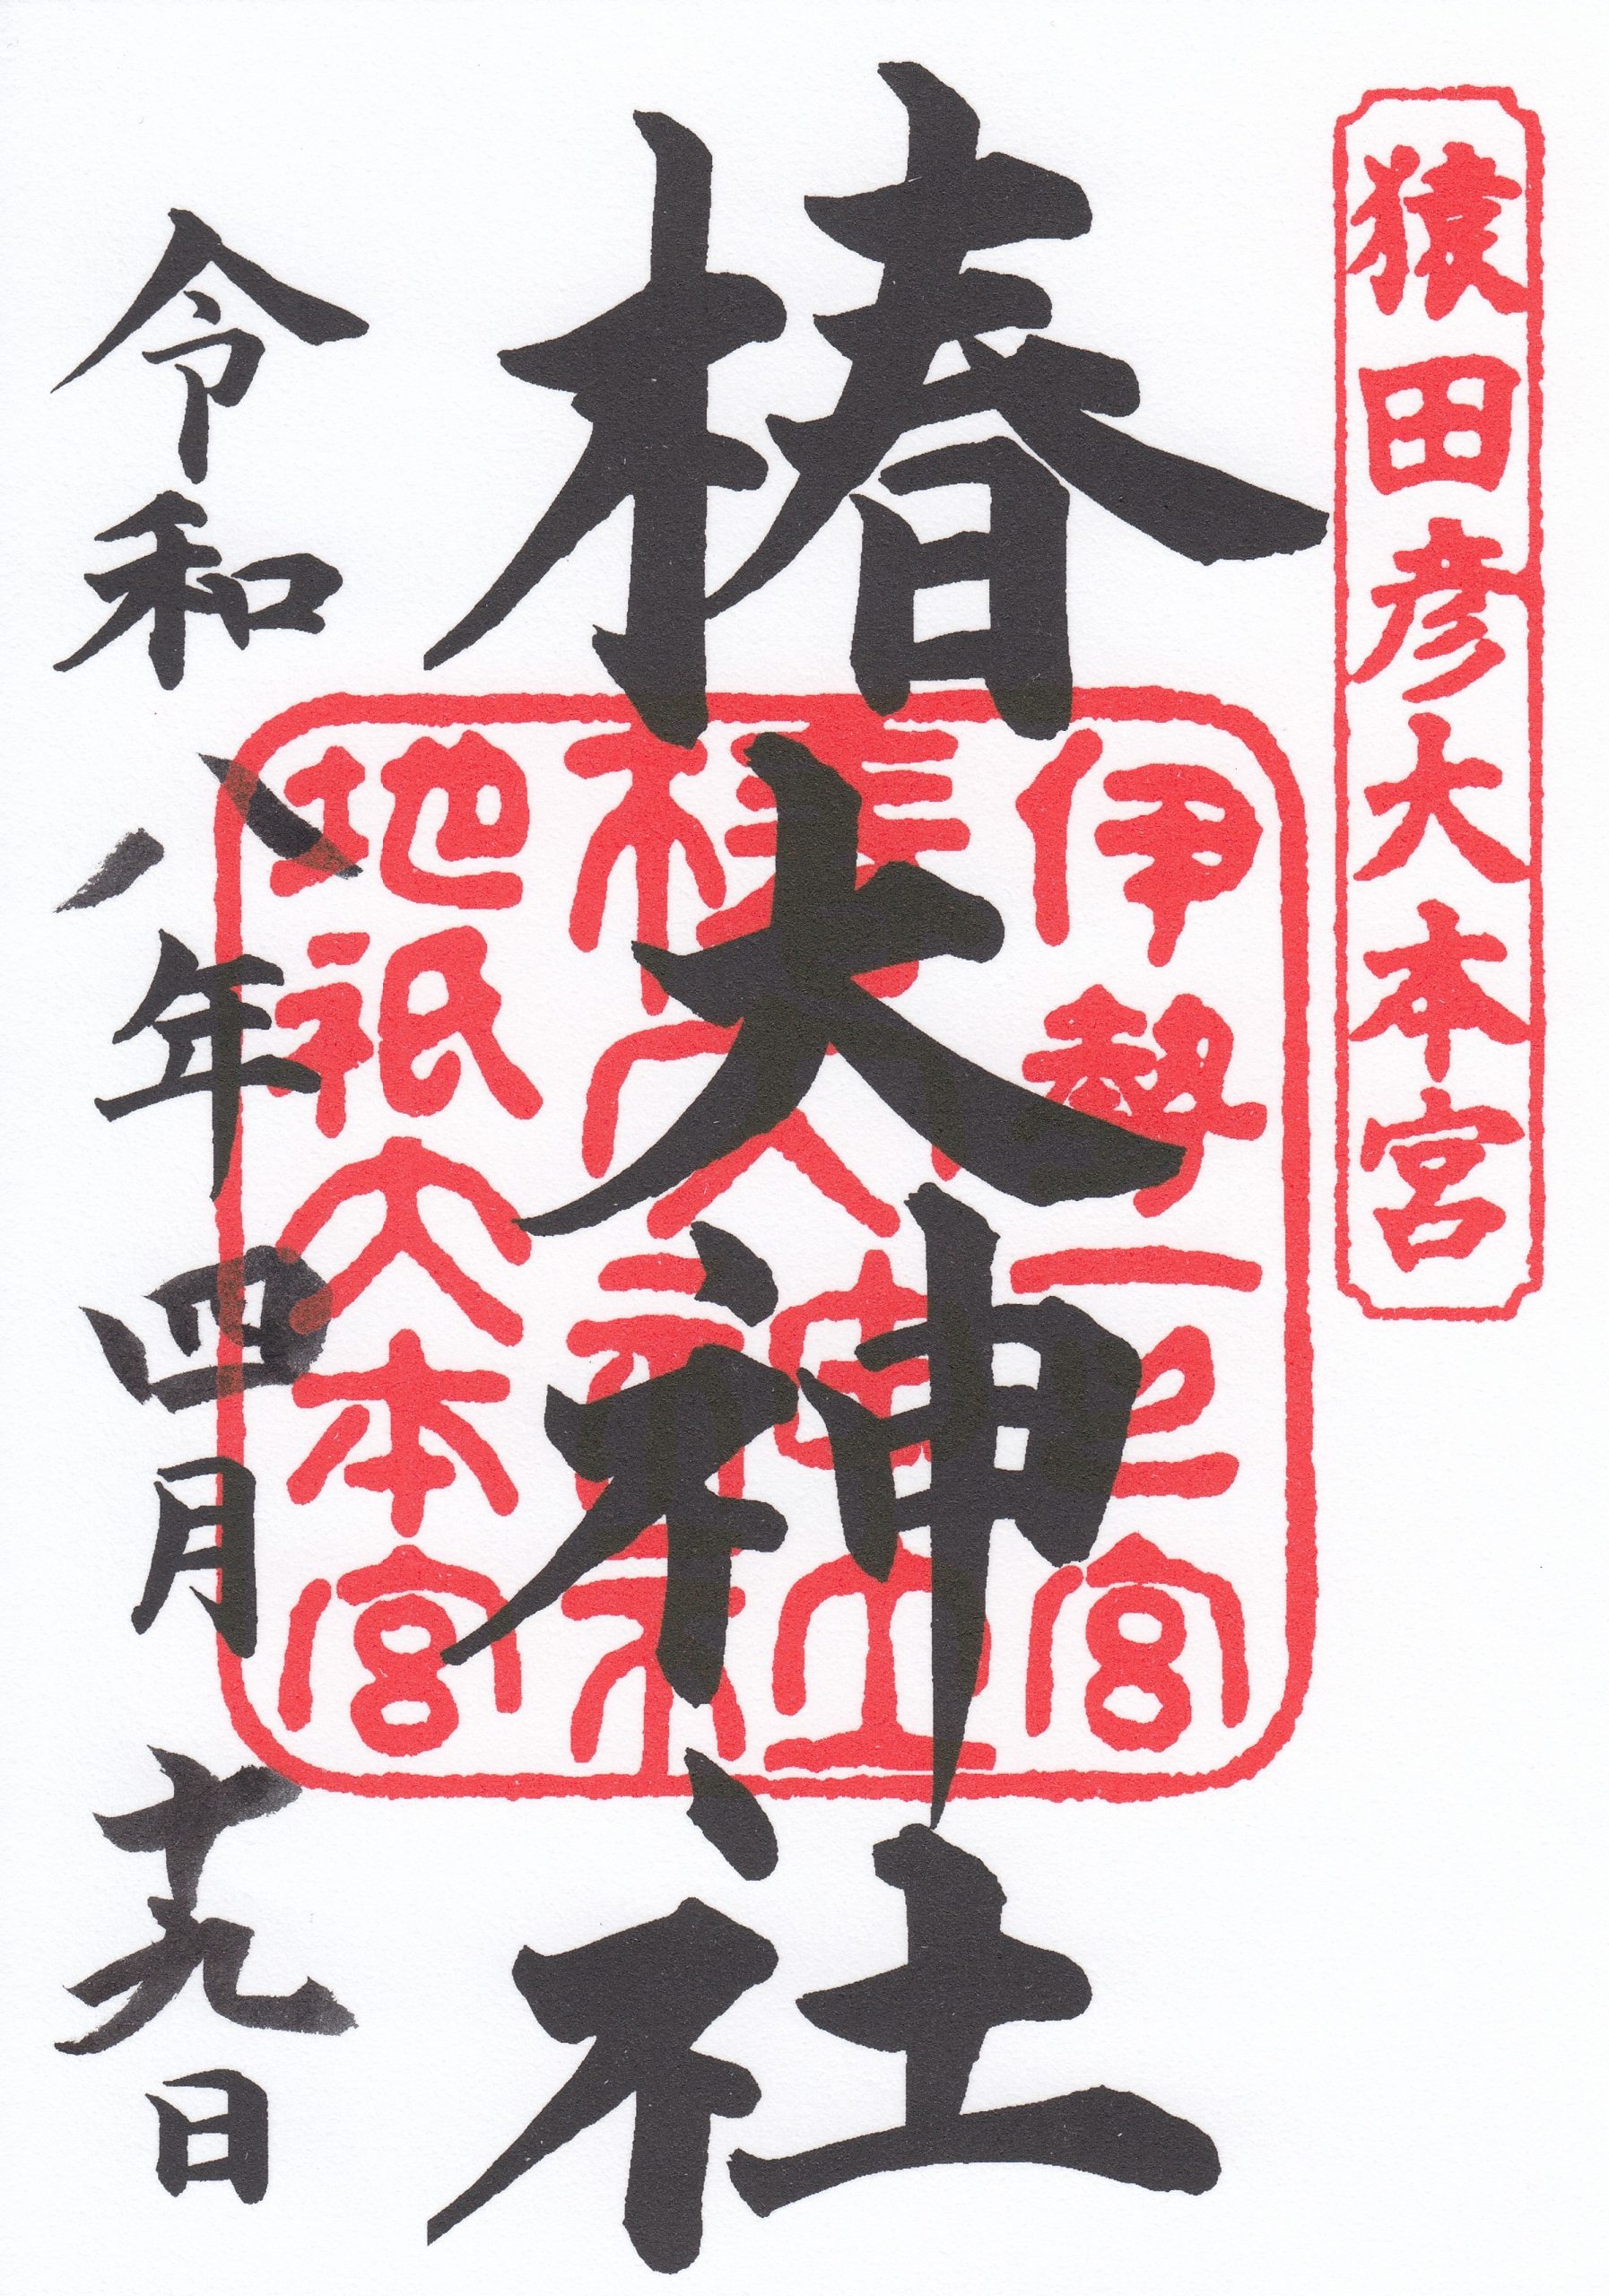 猿田彦大本宮
椿大神社
伊勢一之宮
椿大神社
地祇大本宮
令和八年四月十九日